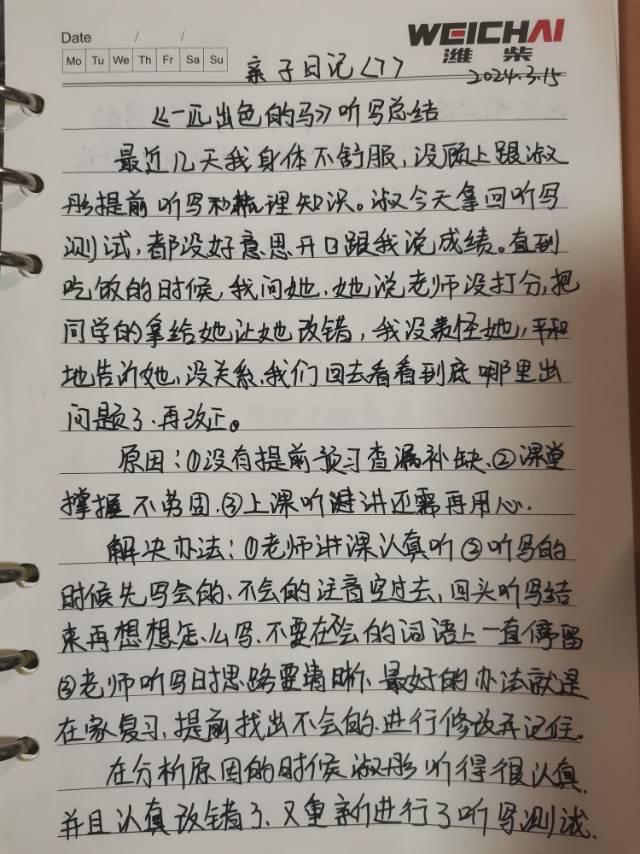 Date / /
Mo Tu We Th Fr Sa Su
WEICHAI
潍柴
亲子日记<7>
2024.3.15
《一匹出色的马》听写总结
最近几天我身体不舒服,没顾上跟淑
彤提前听写和梳理知识。淑今天拿回听写
测试,都没好意思开口跟我说成绩。直到
吃饭的时候,我问她,她说老师没打分,把
同学的拿给她让她改错,我没责怪她,平和
地告诉她,没关系,我们回去看看到底哪里出
问题了.再改正。
原因:①没有提前预习查漏补缺.②课堂
掌握不劳固.③上课听讲还需再用心.
解决办法:①老师讲课认真听②听写的
时候先写会的.不会的注音空过去,回头听写结
束再想想怎么写.不要在不会的词语上一直停留
③老师听写时思路要清晰、最好的办法就是
在家复习,提前找出不会的.进行修改并记住。
在分析原因的时候淑彤听得很认真,
并且认真改错了、又重新进行了听写测试.